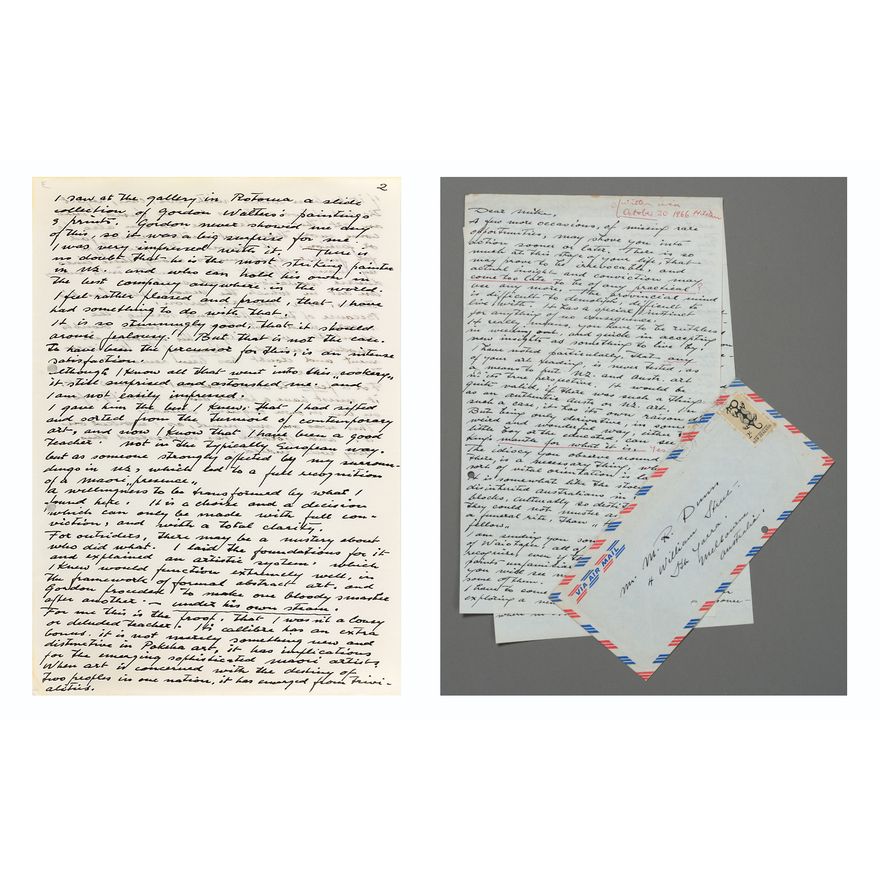 2
I saw at the gallery in Rotorua a slide
collection of Gordon Walters's paintings
& prints. Gordon never showed me any
of this, so it was a big surprise for me.
I was very impressed with it. There is
no doubt that he is the most striking painter
in NZ. and who can hold his own in
the best company anywhere in the world.
I feel rather pleased and proud, that I have
had something to do with that.
It is so stunningly good, that it should
arouse jealousy. But that is not the case.
to have been the percursor for this, is an intense
satisfaction.
Although I know all that went into this "cookery"
it still surprised and astonished me. and
I am not easily impressed.
I gave him the best I knew, that I had sifted
and sorted from the turmoil of contemporary
art, and now I know that I have been a good
teacher. not in the typically European way.
but as someone strongly affected by my surroun-
dings in NZ, which led to a full recognition
of a maori "presence"
a willingness to be transformed by what I
found here. It is a choice and a decision
which can only be made with full con-
viction, and with a total clarity.
For outsiders, there may be a mistery about
who did what. I laid the foundations for it
and explained an artistic system, which
I knew would function extremely well, in
the framework of formal abstract art, and
Gordon proceeded to make one bloody smasher
after another. — under his own steam.
For me this is the proof, that I wasn't a lousy
or deluded teacher. Its callibre has an extra
bonus. it is not merely something new and
distinctive in Pakeha art, it has implications
for the emerging sophisticated maori artists
When art is concerned with the destiny of
two peoples in one nation, it has emerged from trivi-
alities.
written in
October 30 1966
Dear Mike,
A few more occasions, of missing rare
opportunities, may shove you into
action sooner or later. There is so
much at this stage of your life, that
may prove to be irrevocable, and
actual insight and conviction may
come too late to be of any practical
use any more. The provincial mind
is difficult to demolish, difficult to
live with. It has a special instinct
for anything of no consequence.
It really means, you have to be ruthless
in weeding out and quick in accepting
new insights as something to live by.
I have noted particularly, that any
of your art reading, is never tested, as
a means to put NZ and Austr. art
in its true perspective. It would be
quite valid if there was such a thing
as an authentic Austr. or NZ. art. In
such a case, it has its own raison d
But being only derivative in some
weird and wonderful way, even the
little boy or the educated, can see the
King's mantle for what it is. Yes
The idiocy you observe around
there, is a necessary thing, wh
sort of vital orientation is la
It is somewhat like the stone
disinherited australians in
blocks, culturally so destit
they could not muster as
a funeral rite, than "H
fellow"
I am sending you son
of Waiotapu, all of
recognise, even if the
points unfamiliar
you will see m
some of them.
I have to come
exploring a ne
VIA AIR MAIL
Mr. M. R. Dunn
4 William Street
Sth Yarra
Melbourne
Australia.